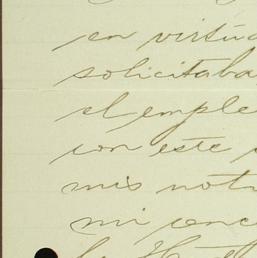 en virtud
solicitaba
el emple
con este
mis not
mi conc